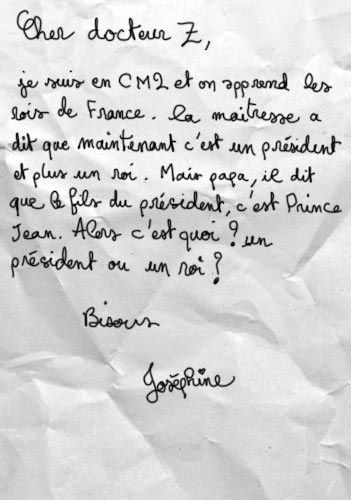 Cher docteur Z,
je suis en CM2 et on apprend les
rois de France. La maitresse a
dit que maintenant c'est un président
et plus un roi. Mais papa, il dit
que le fils du président, c'est Prince
Jean. Alors c'est quoi ? un
président ou un roi ?
Bisous
Joséphine